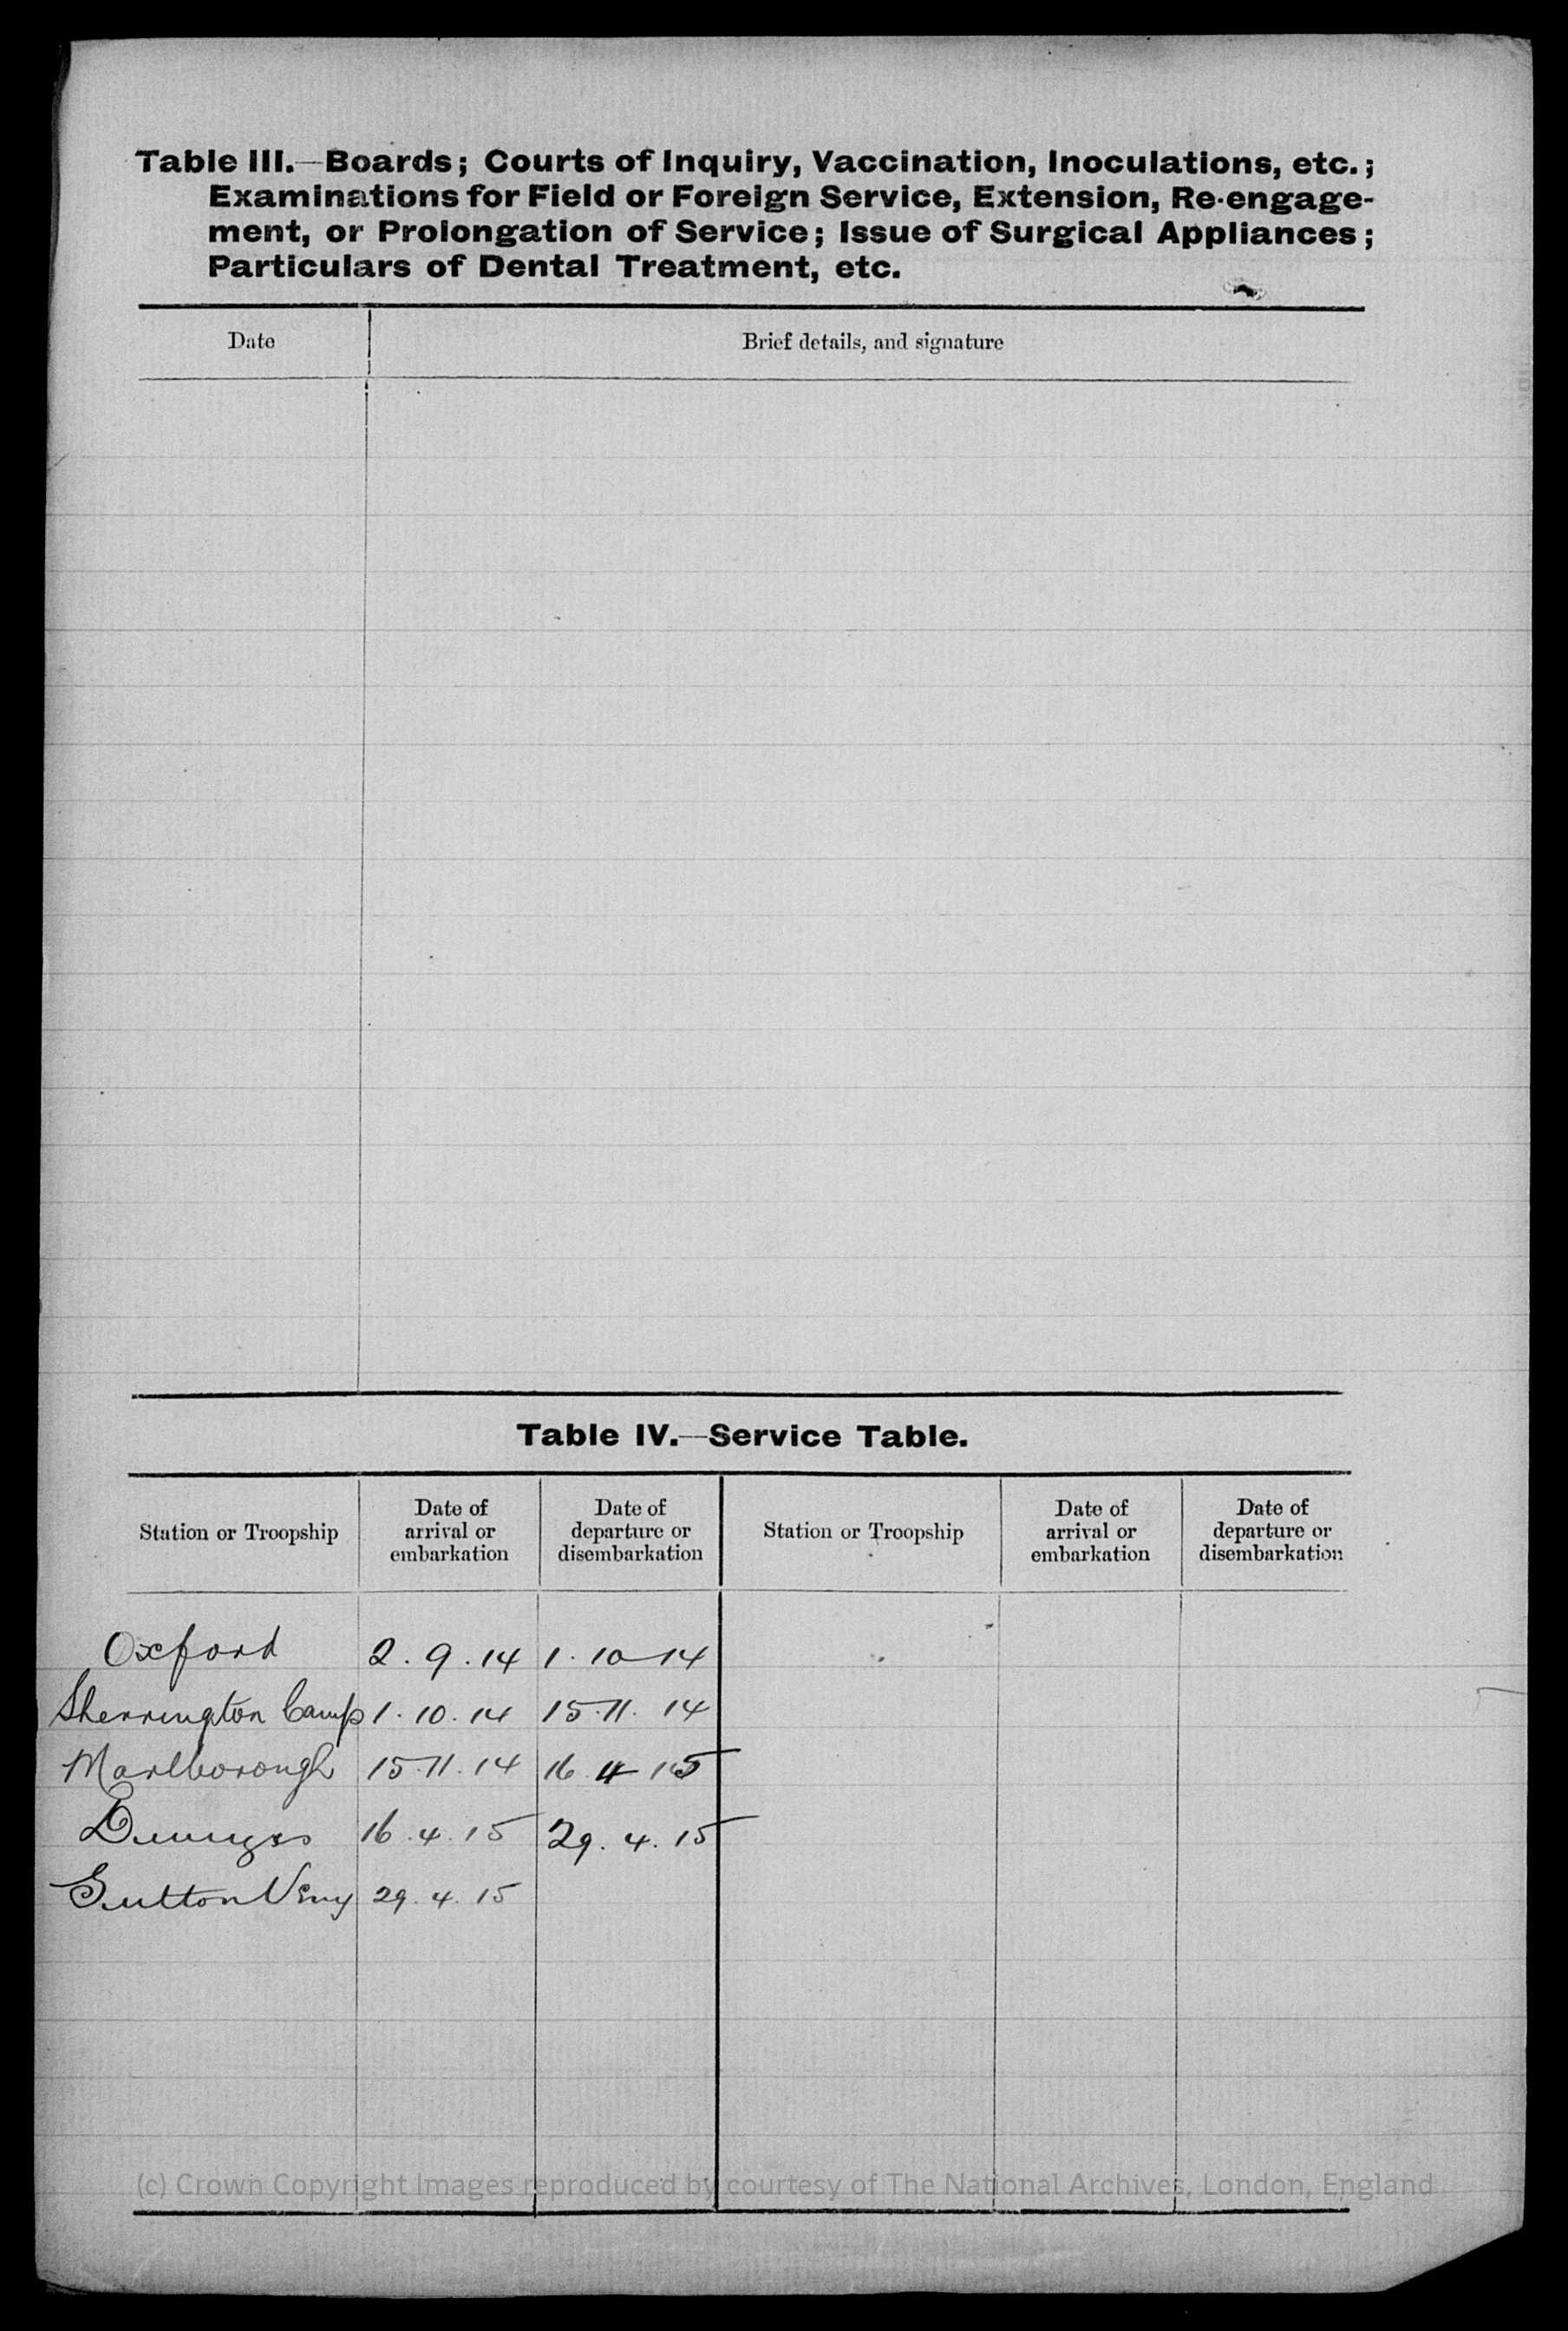 Table III.—Boards; Courts of Inquiry, Vaccination, Inoculations, etc.;
Examinations for Field or Foreign Service, Extension, Re-engage-
ment, or Prolongation of Service; Issue of Surgical Appliances;
Particulars of Dental Treatment, etc.
Date Brief details, and signature
Table IV.—Service Table.
Station or Troopship
Date of
arrival or
embarkation
Date of
departure or
disembarkation
Station or Troopship
Date of
arrival or
embarkation
Date of
departure or
disembarkation
Oxford 2.9.14 1.10.14
Sherrington Camp 1.10.14 15.11.14
Marlborough 15.11.14 16 4 15
16.4.15 29.4.15
Sutton Veny 29.4.15
(c) Crown Copyright Images reproduced by courtesy of The National Archives, London, England